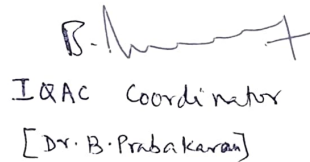 B.
IQAC Coordinator
[Dr. B. Prabakaran]